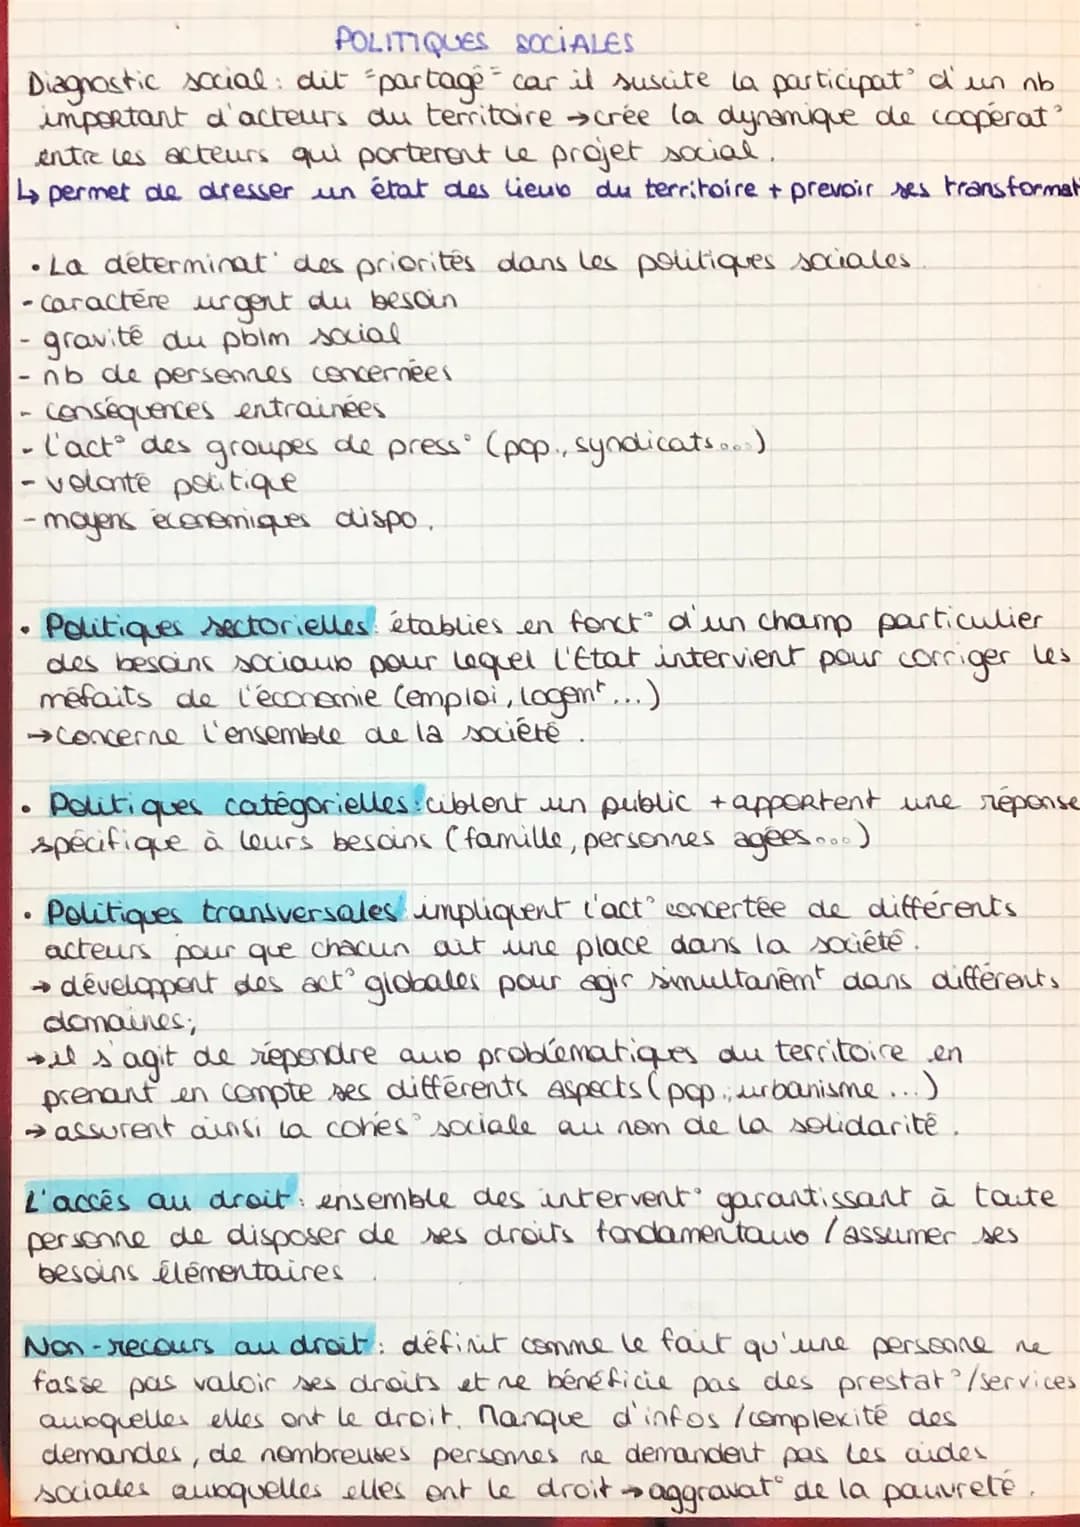 POLITIQUES SOCIALES
Diagnostic social : dit "partagé" car il suscite la participat° d'un nb
important d'acteurs du territoire → crée la dynamique de coopérat°
entre les acteurs qui porteront le projet social.
↳ permet de dresser un état des lieux du territoire + prevoir ses transformat
• La déterminat° des priorités dans les politiques sociales.
- caractère urgent du besoin
- gravité du pblm social
- nb de personnes concernées
- conséquences entrainées
- l'act° des groupes de press° (pop., syndicats...)
- volonté politique
- moyens économiques dispo.
• Politiques sectorielles : établies en fonct° d'un champ particulier
des besoins sociaux pour lequel l'Etat intervient pour corriger les
méfaits de l'économie (emploi, logemt...)
→ Concerne l'ensemble de la société.
• Politiques catégorielles : ciblent un public + apportent une réponse
spécifique à leurs besoins (famille, personnes agées...)
• Politiques transversales : impliquent l'act° concertée de différents
acteurs pour que chacun ait une place dans la société.
→ développent des act° globales pour agir simultanémt dans différents
domaines;
→ il s'agit de répondre aux problématiques du territoire en
prenant en compte ses différents aspects (pop., urbanisme...)
→ assurent ainsi la cohés° sociale au nom de la solidarité.
L'accès au droit : ensemble des intervent° garantissant à toute
personne de disposer de ses droits fondamentaux / assumer ses
besoins élémentaires.
Non-recours au droit : définit comme le fait qu'une personne ne
fasse pas valoir ses droits et ne bénéficie pas des prestat°/services
auxquelles elles ont le droit. Manque d'infos / complexité des
demandes, de nombreuses personnes ne demandent pas les aides
sociales auxquelles elles ont le droit → aggravat° de la pauvreté.